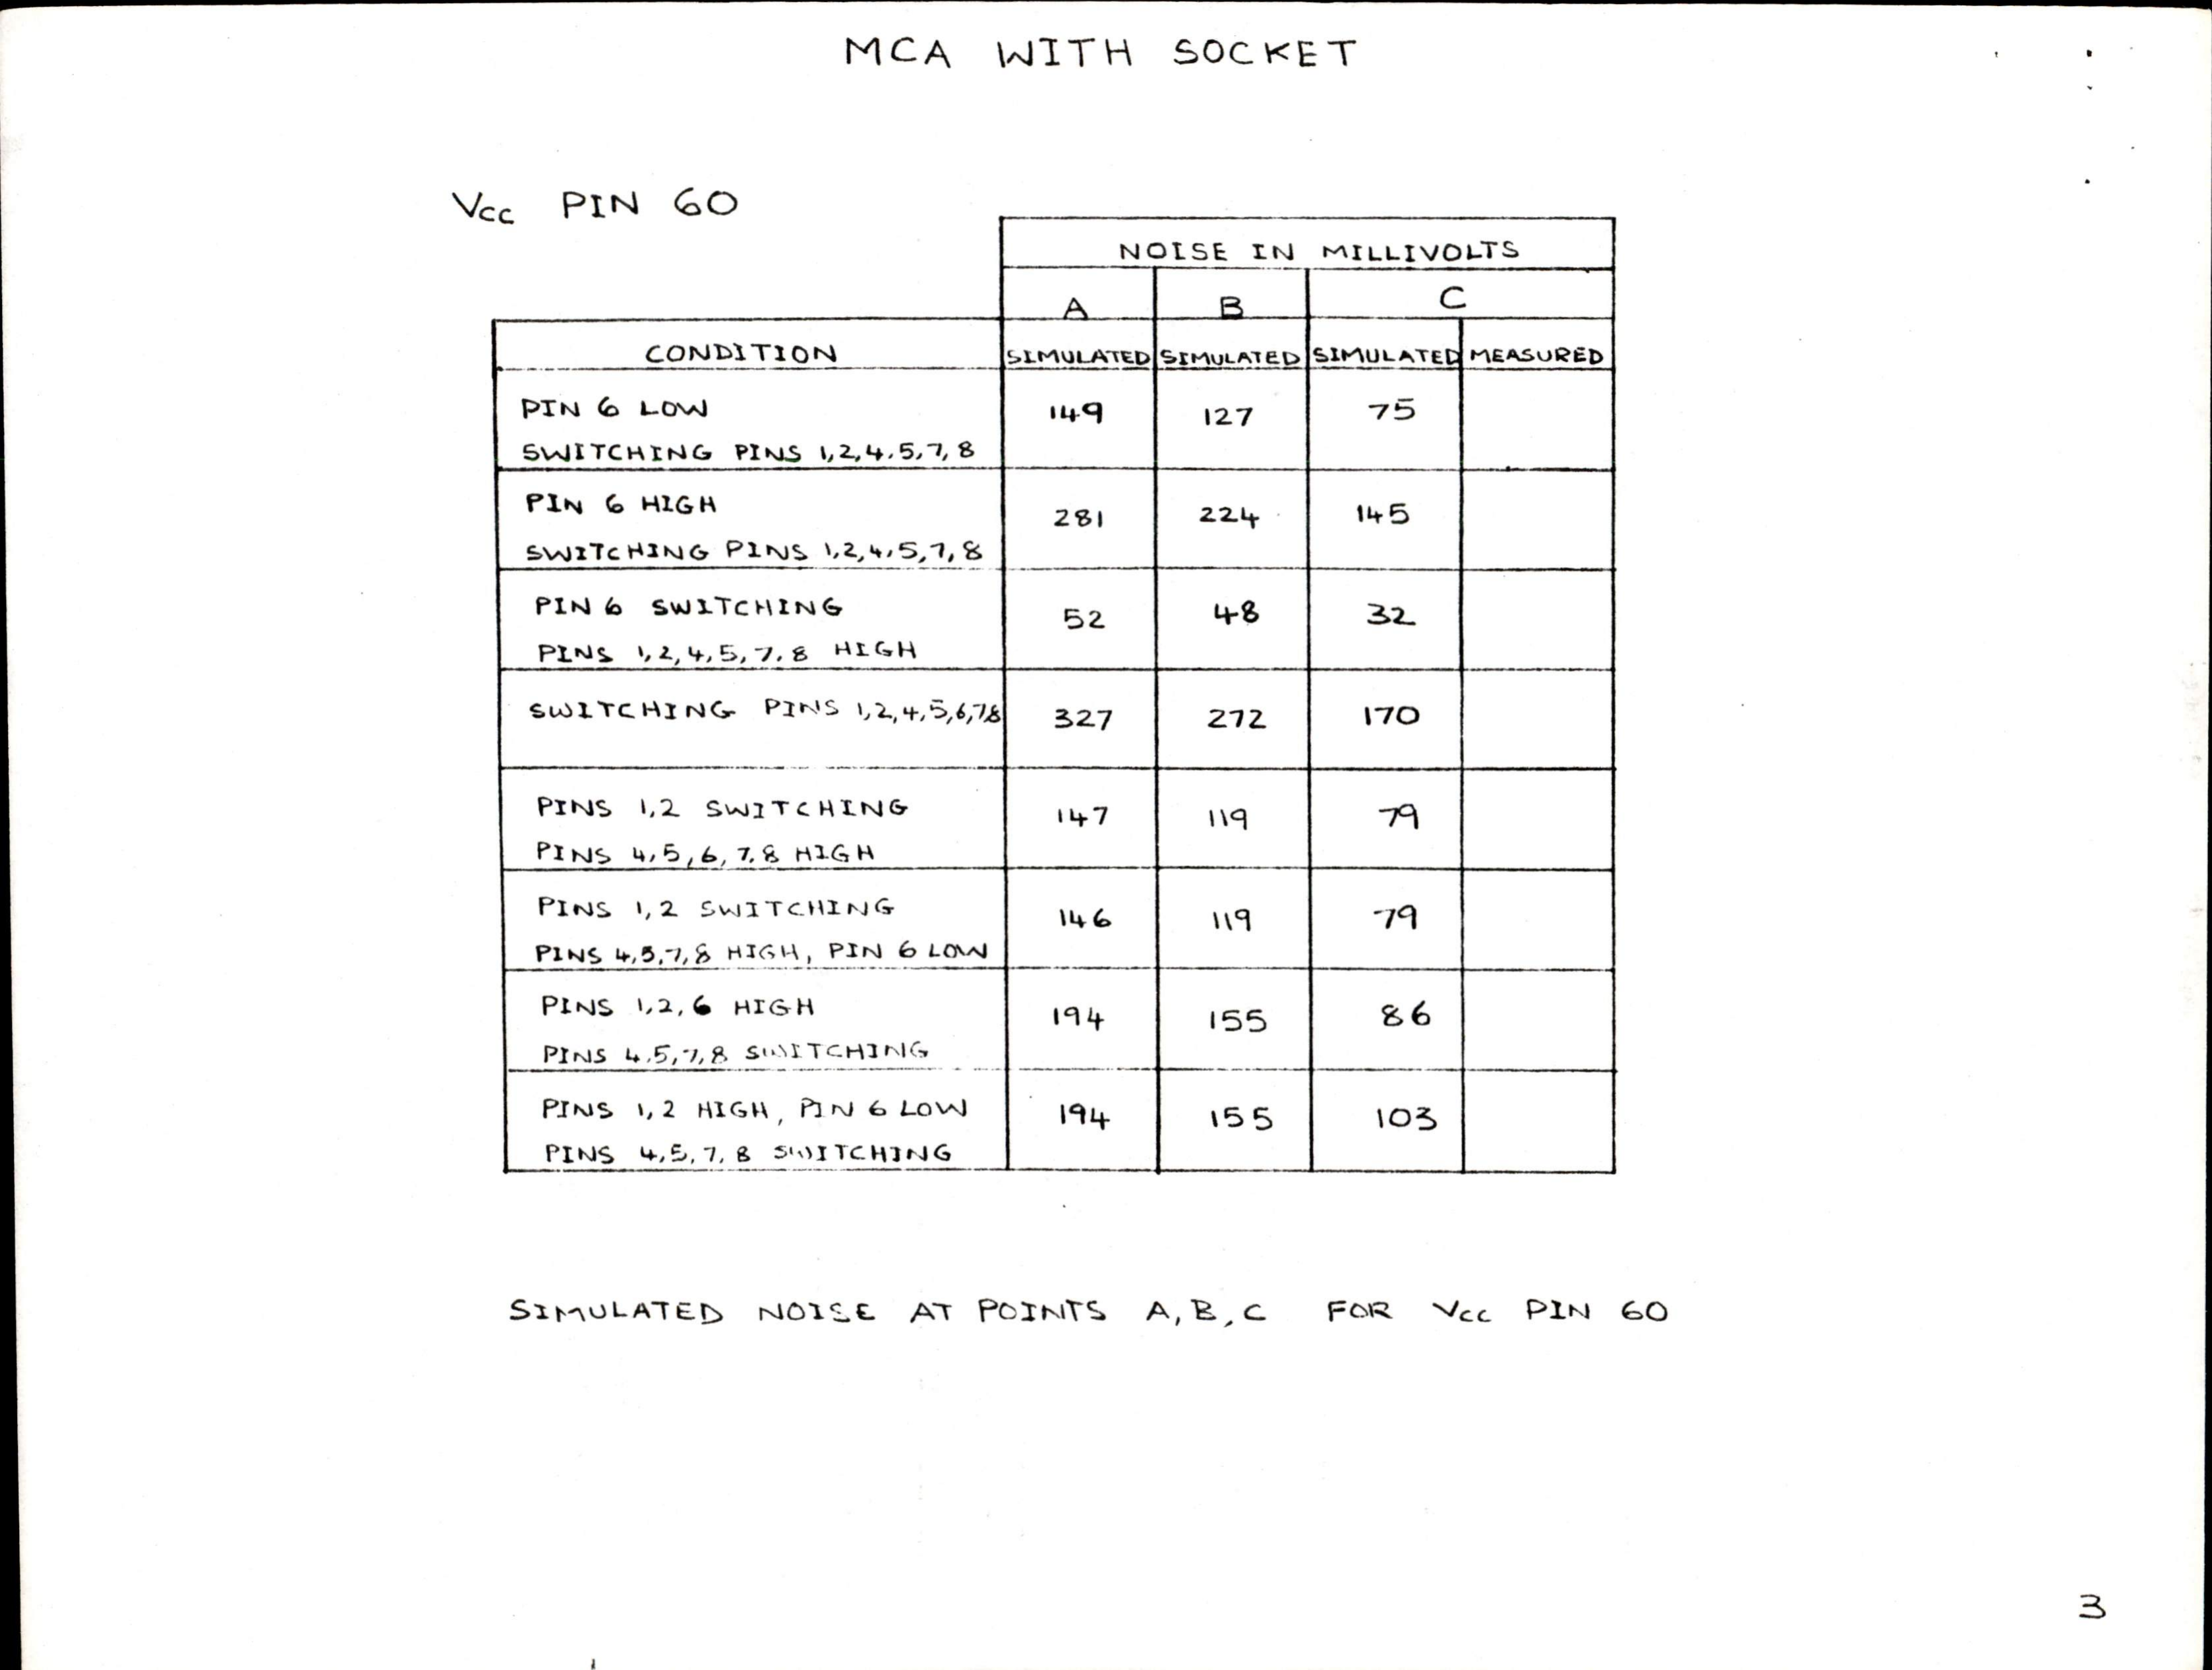 MCA WITH SOCKET
Vcc PIN 60
NOISE IN MILLIVOLTS
A B C
CONDITION SIMULATED SIMULATED SIMULATED MEASURED
PIN 6 LOW
SWITCHING PINS 1,2,4,5,7,8
149 127 75
PIN 6 HIGH
SWITCHING PINS 1,2,4,5,7,8
281 224 145
PIN 6 SWITCHING
PINS 1,2,4,5,7,8 HIGH
52 48 32
SWITCHING PINS 1,2,4,5,6,7,8 327 272 170
PINS 1,2 SWITCHING
PINS 4,5,6,7,8 HIGH
147 119 79
PINS 1,2 SWITCHING
PINS 4,5,7,8 HIGH, PIN 6 LOW
146 119 79
PINS 1,2,6 HIGH
PINS 4,5,7,8 SWITCHING
194 155 86
PINS 1,2 HIGH, PIN 6 LOW
PINS 4,5,7,8 SWITCHING
194 155 103
SIMULATED NOISE AT POINTS A,B,C FOR Vcc PIN 60
3